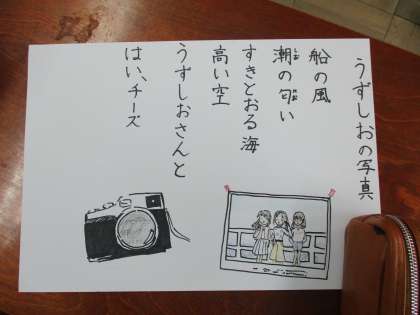 うずしおの写真
船の風
潮の匂い
すきとおる海
高い空
うずしおさんと
はい、チーズ